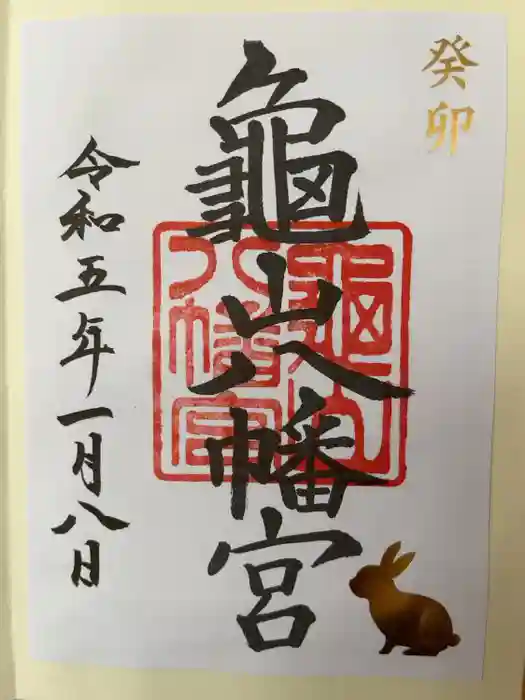 癸卯
龜山八幡宮
龜山
八幡宮
令和五年一月八日